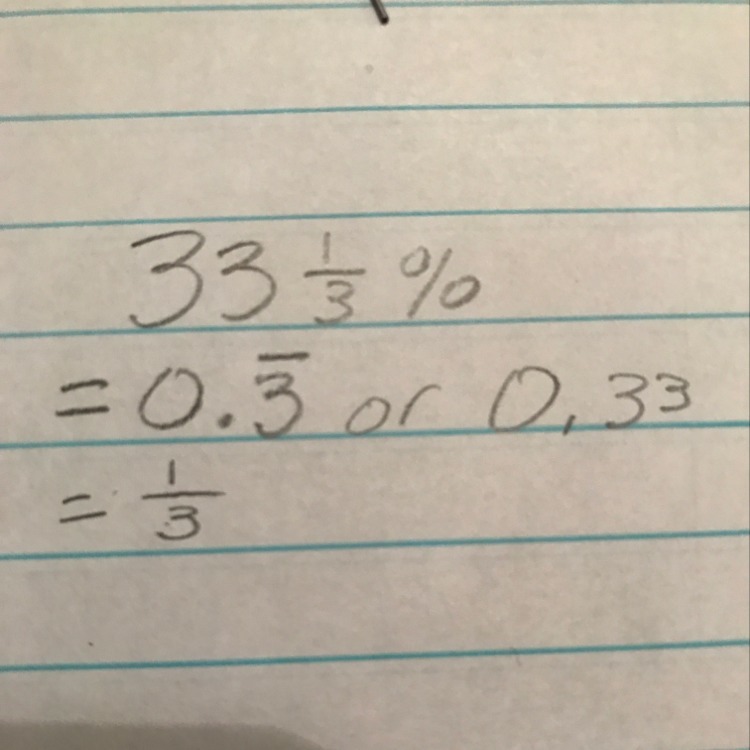 33 1/3 %
= 0.3̅ or 0,33
= 1/3